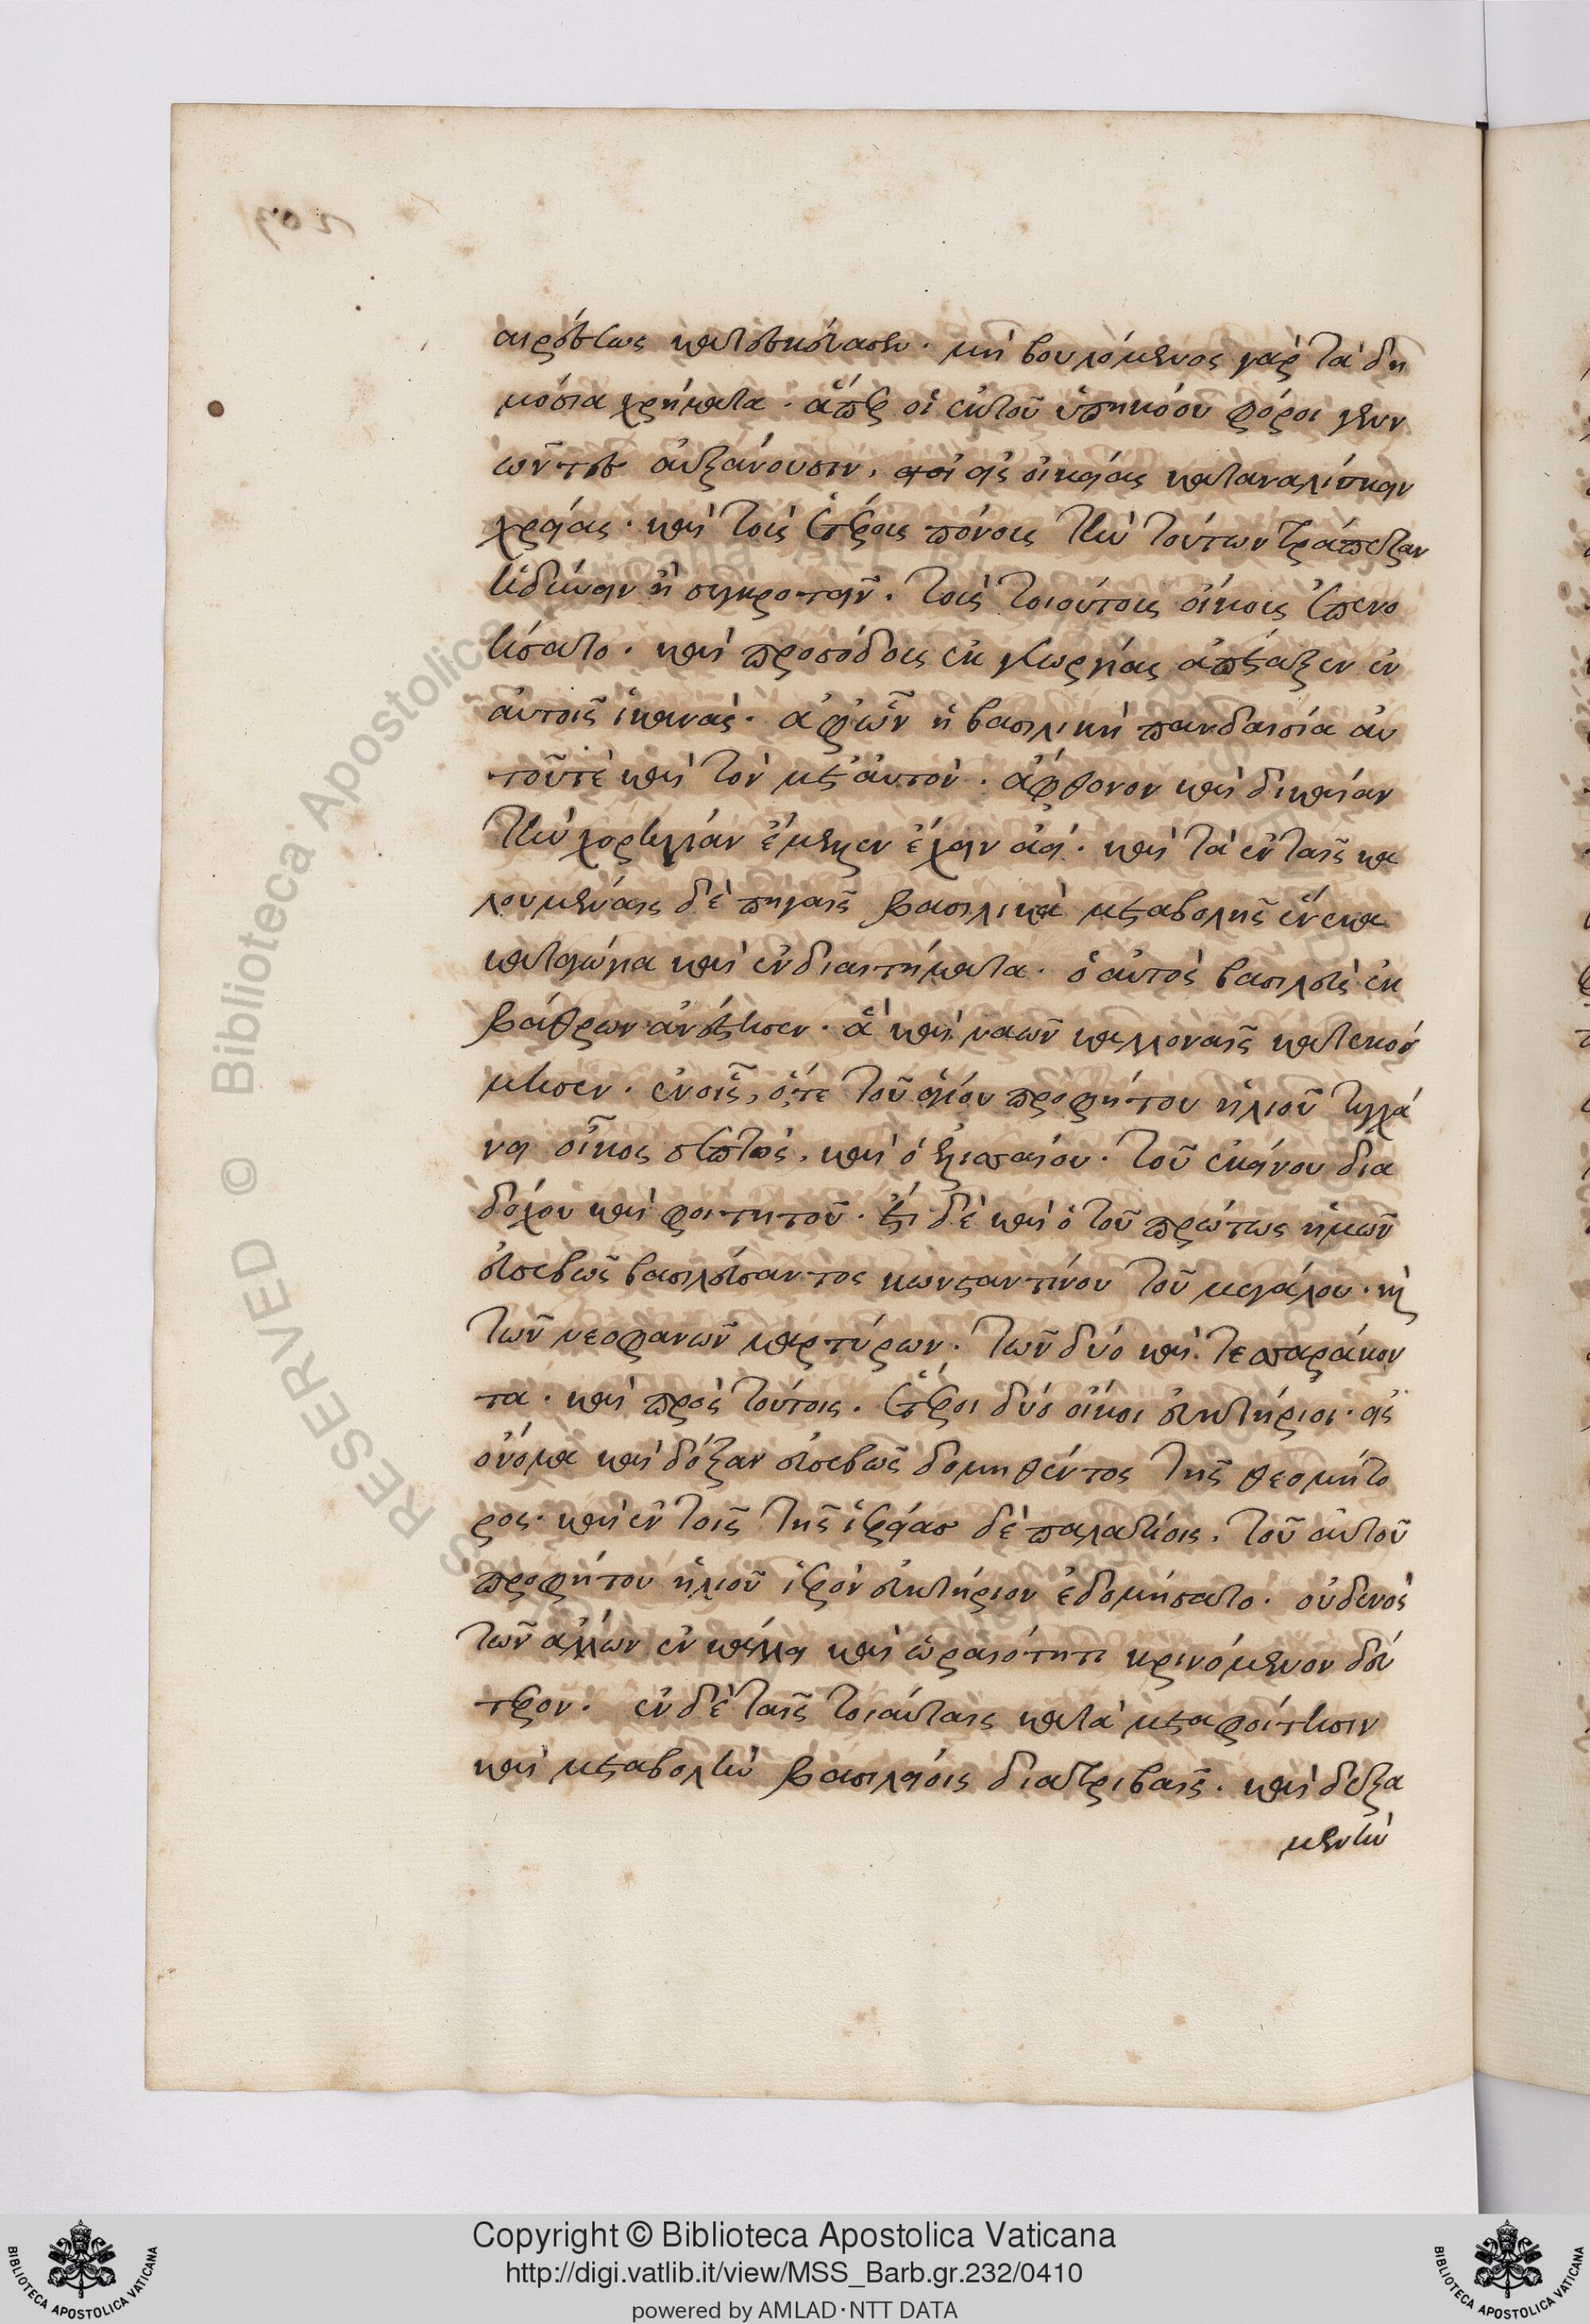 αιρέσεως κατεσκεύασεν· μὴ βουλόμενος γὰρ τὰ δη
μόσια χρήματα· ἅπερ οἱ ἐκ τοῦ ὑπηκόου φόροι γενν
ῶντες αὐξάνουσιν, εἰς οἰκείας καταναλίσκειν
χρείας· καὶ τοῖς ἑτέροις πόνοις τὴν τούτων τράπεζαν
ἡδύνειν ἢ συγκροτεῖν. τοῖς τοιούτοις οἴκοις ἐπενο
ήσατο· καὶ προσόδοις ἐκ γεωργίας ἀπέταξεν ἐν
αὐτοῖς ἱκανάς· ἀφ' ὧν ἡ βασιλικὴ πανδαισία αὐ
τοῦ τὲ καὶ τὸν μετ' αὐτὸν· ἄφθονον καὶ δικαίαν
τὴν χορηγίαν ἔμελλεν ἔχειν ἀεί· καὶ τὰ ἐν ταῖς κα
λουμέναις δὲ πηγαῖς βασιλικὰ μεταβολῆς ἕνεκα
καταγώγια καὶ ἐνδιαιτήματα· ὁ αὐτὸς βασιλεὺς ἐκ
βάθρων ἀνέστησεν· ἃ καὶ ναῶν καλλοναῖς κατεκόσ
μησεν· ἐν οἷς, ὅ, τε τοῦ ἁγίου προφήτου ἡλιοῦ τυγχά
νει οἶκος σεπτὸς, καὶ ὁ ἐλισσαίου· τοῦ ἐκείνου δια
δόχου καὶ φοιτητοῦ· ἔτι δὲ καὶ ὁ τοῦ πρώτως ἡμῶν
εὐσεβῶς βασιλεύσαντος κωνσταντίνου τοῦ μεγάλου· καὶ
τῶν νεοφανῶν μαρτύρων· τῶν δύο καὶ τεσσαράκον
τα· καὶ πρὸς τούτοις· ἕτεροι δύο οἶκοι εὐκτήριοι· εἰς
ὄνομα καὶ δόξαν εὐσεβῶς δομηθέντος τῆς θεομήτο
ρος· καὶ ἐν τοῖς τῆς ἱερείας δὲ παλατίοις, τοῦ αὐτοῦ
προφήτου ἡλιοῦ ἱερὸν εὐκτήριον ἐδομήσατο· οὐδενὸς
τῶν ἄλλων ἐν κάλλει καὶ ὡραιότητι κρινόμενον δεύ
τερον· ἐν δὲ ταῖς τοιαύταις κατὰ μεταφοίτησιν
καὶ μεταβολὴν βασιλείοις διατριβαῖς· καὶ δεξα
μενὴν
Copyright © Biblioteca Apostolica Vaticana
http://digi.vatlib.it/view/MSS_Barb.gr.232/0410
powered by AMLAD·NTT DATA